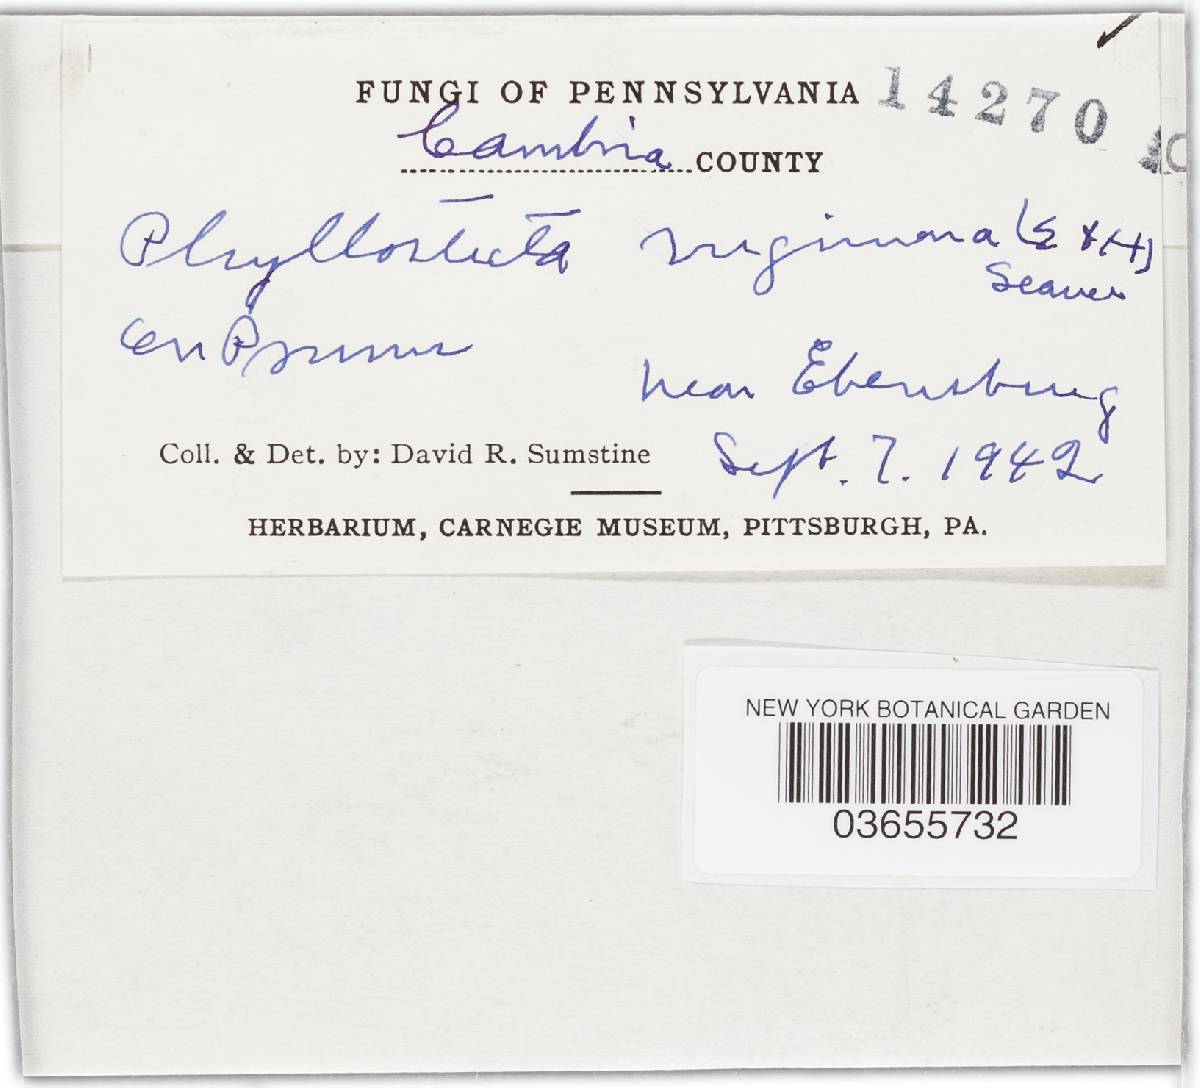 FUNGI OF PENNSYLVANIA 14270
Cambria COUNTY
Phyllosticta virginiana (E & H)
Seaver
on Prunus
near Ebensburg
Coll. & Det. by: David R. Sumstine Sept. 7. 1942
HERBARIUM, CARNEGIE MUSEUM, PITTSBURGH, PA.
NEW YORK BOTANICAL GARDEN
03655732